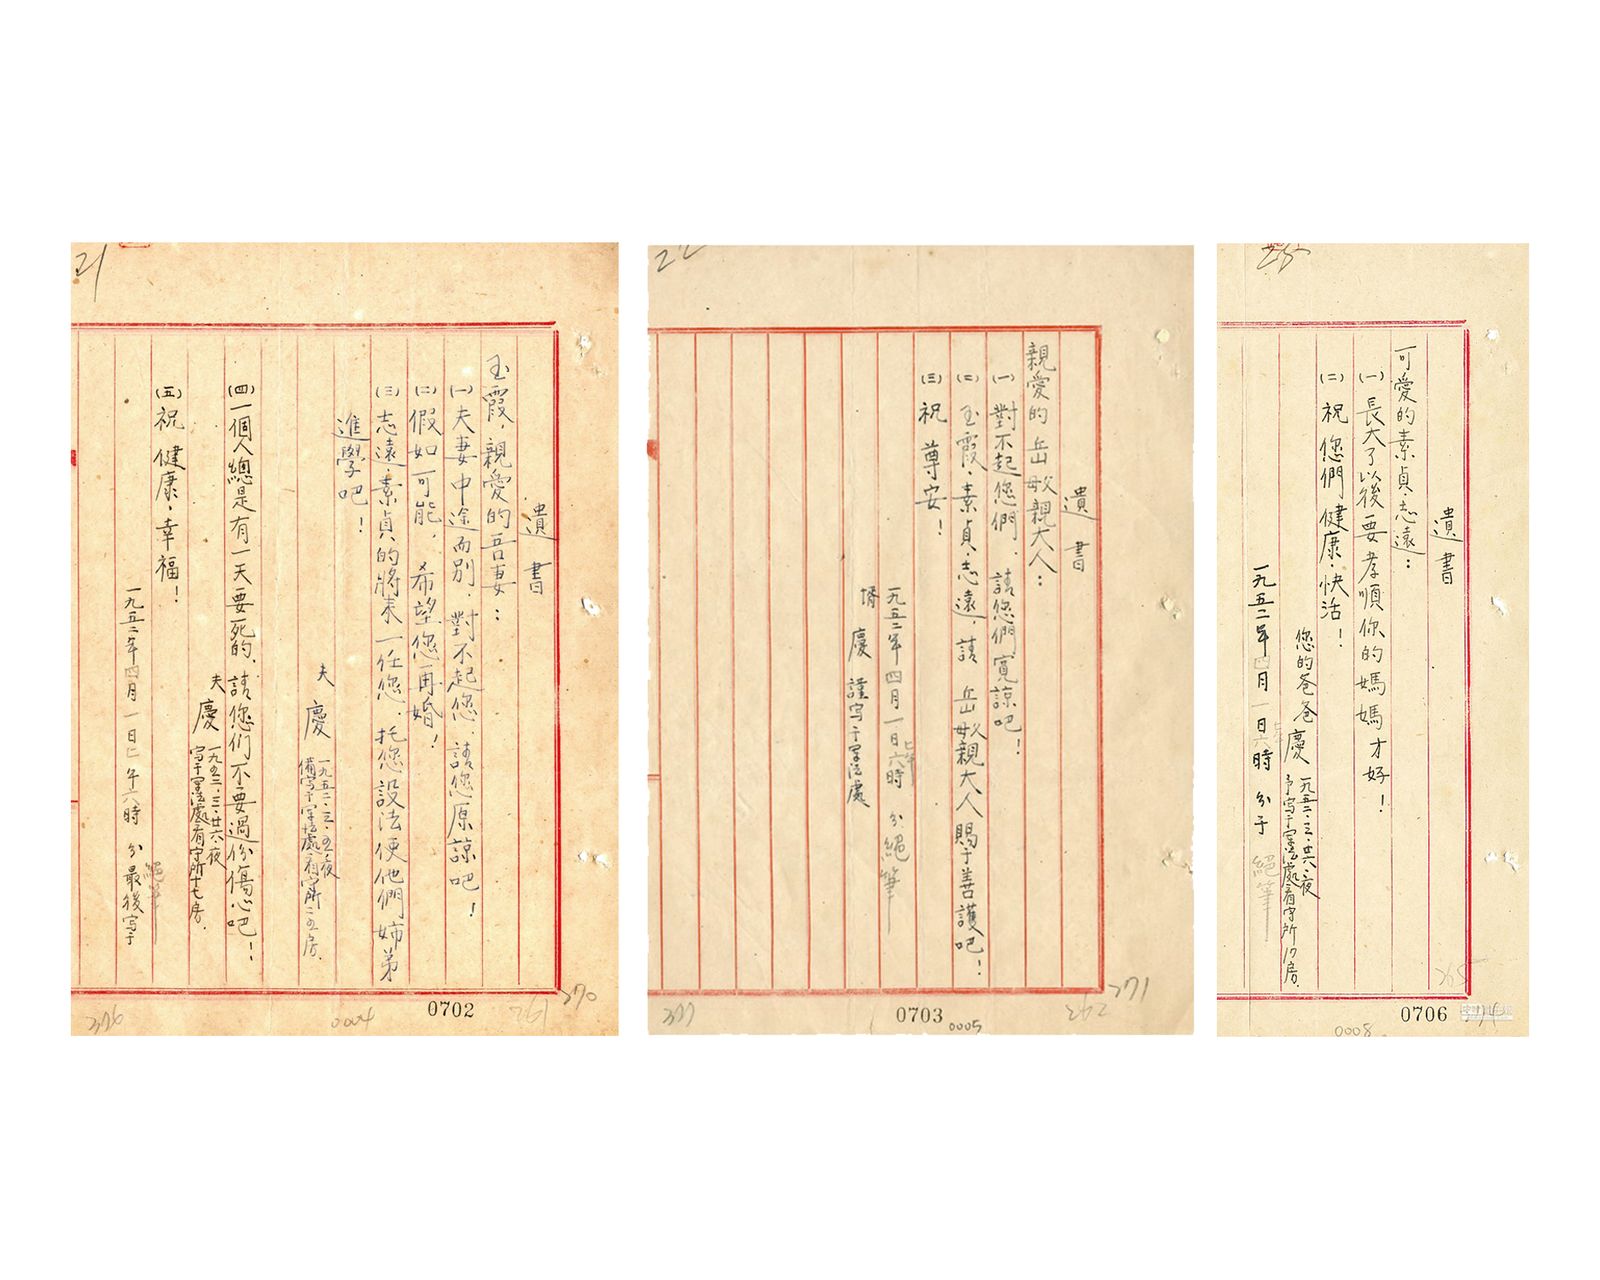 21
遺書
玉霞,親愛的吾妻:
(一)夫妻中途而別,對不起您,請您原諒吧!
(二)假如可能,希望您再婚!
(三)志遠、素貞的將來一任您,托您設法使他們姉弟
進學吧!
夫 慶 一九五二、三、五、夜
備寫于軍法處看守所二五房.
(四)一個人總是有一天要死的,請您们不要過份傷心吧!
夫 慶 一九五二、三、廿六夜
寫于軍法處看守所十七房.
(五)祝 健康、幸福!
絕筆
一九五二年四月一日 午六時 分最後寫于
376
0004
0702
261
370
22
遺書
親愛的岳父母親大人:
(一)對不起您們,請您們寬諒吧!
(二)玉霞、素貞、志遠,請 岳父母親大人賜于善護吧!
(三)祝 尊安!
一九五二年四月一日 六時 分 絕筆
婿 慶 謹寫于軍法處
377
0703
0005
262
371
25
遺書
可愛的素貞、志遠:
(一)長大了以後要孝順你的媽媽才好!
(二)祝 您們 健康、快活!
您的爸爸慶 一九五二、三、廿六、夜
予寫于軍法處看守所17房.
一九五二年四月一日六時 分于 絕筆
265
0706
0008